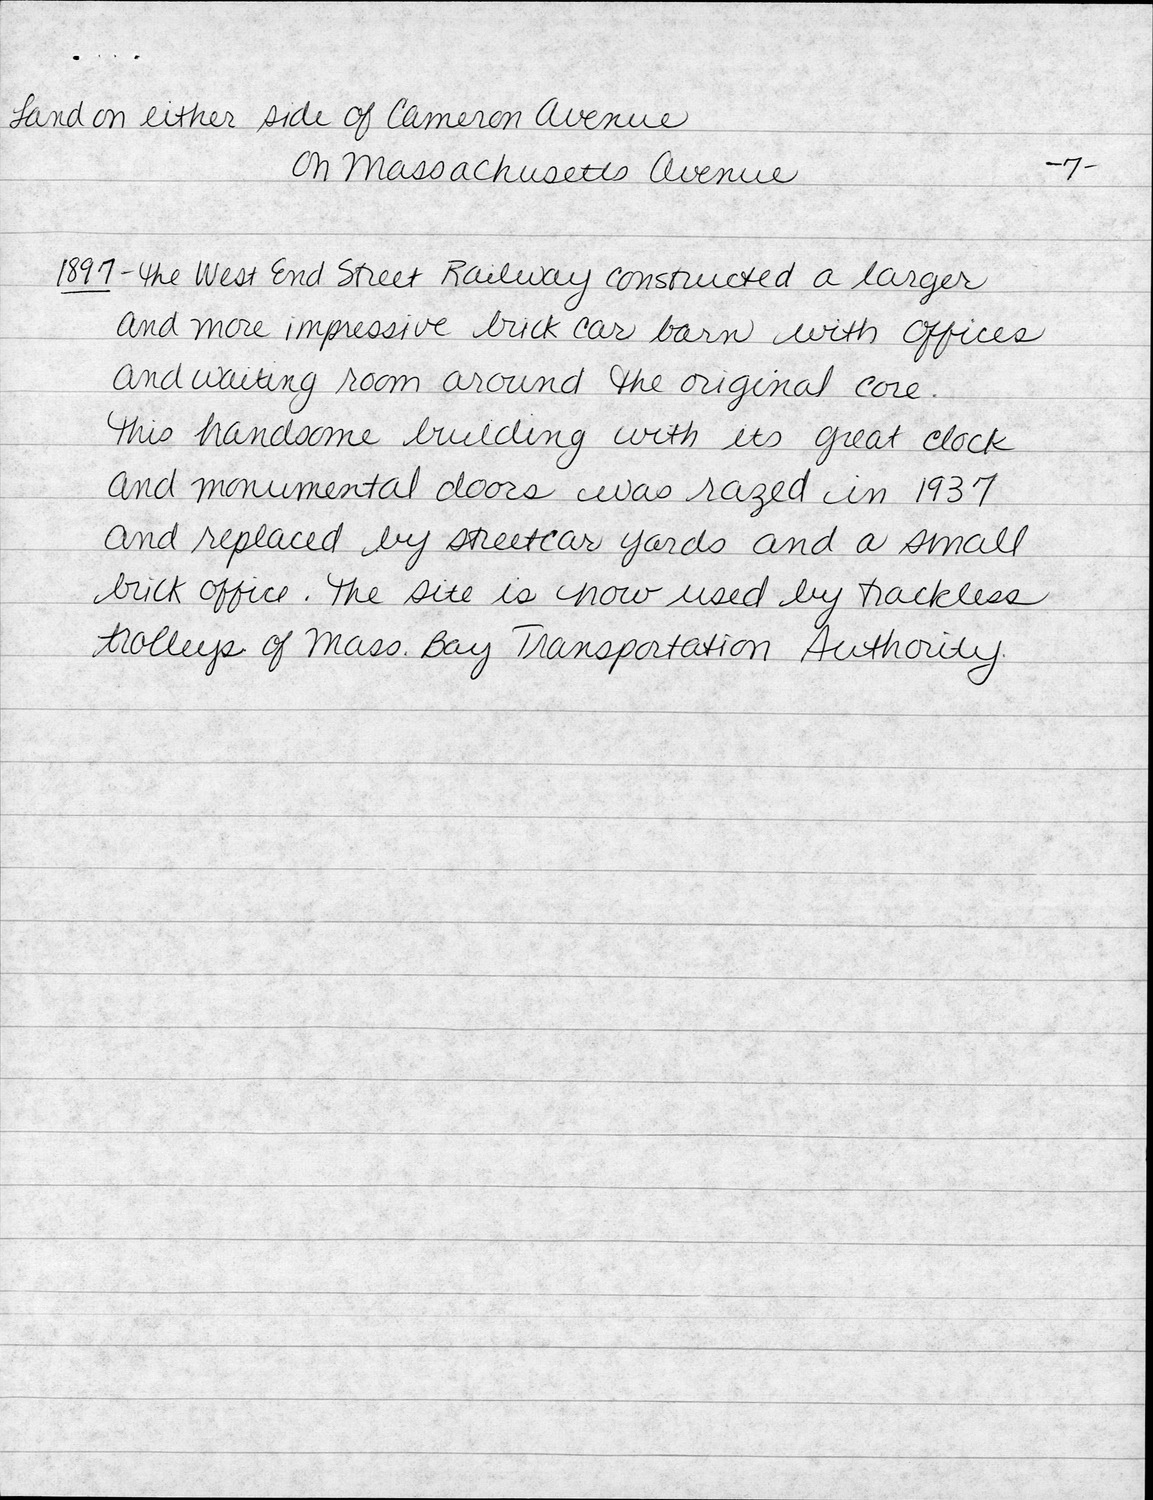 Land on either side of Cameron Avenue
on Massachusetts Avenue
-7-
1897 - The West End Street Railway constructed a larger
and more impressive brick car barn with offices
and waiting room around the original core.
This handsome building with its great clock
and monumental doors was razed in 1937
and replaced by streetcar yards and a small
brick office. The site is now used by trackless
trolleys of Mass. Bay Transportation Authority.